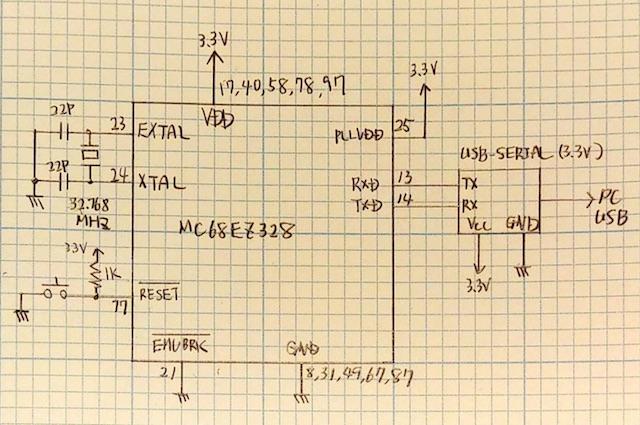 3.3V
17,40,58,78,97
VDD
3.3V
22P
23
EXTAL
PLLVDD
25
USB-SERIAL (3.3V)
22P
24
XTAL
RXD
13
TX
TXD
14
RX
PC
USB
32.768
MHz
MC68EZ328
Vcc
GND
3.3V
3.3V
1K
RESET
77
EMUBRK
GND
21
8,31,49,67,87